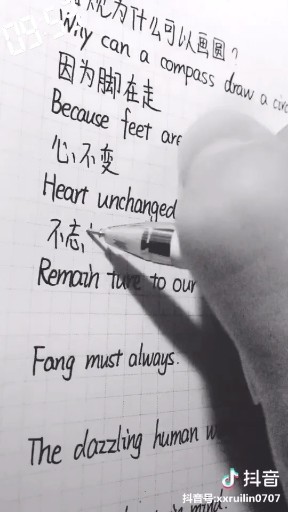 规为什么可以画圆?
Why can a compass draw a circ
因为脚在走
Because feet are
心不变
Heart unchanged
不忘
Remain ture to our
Fang must always.
The dazzling human w
in mind.
抖音
抖音号:xxruilin0707